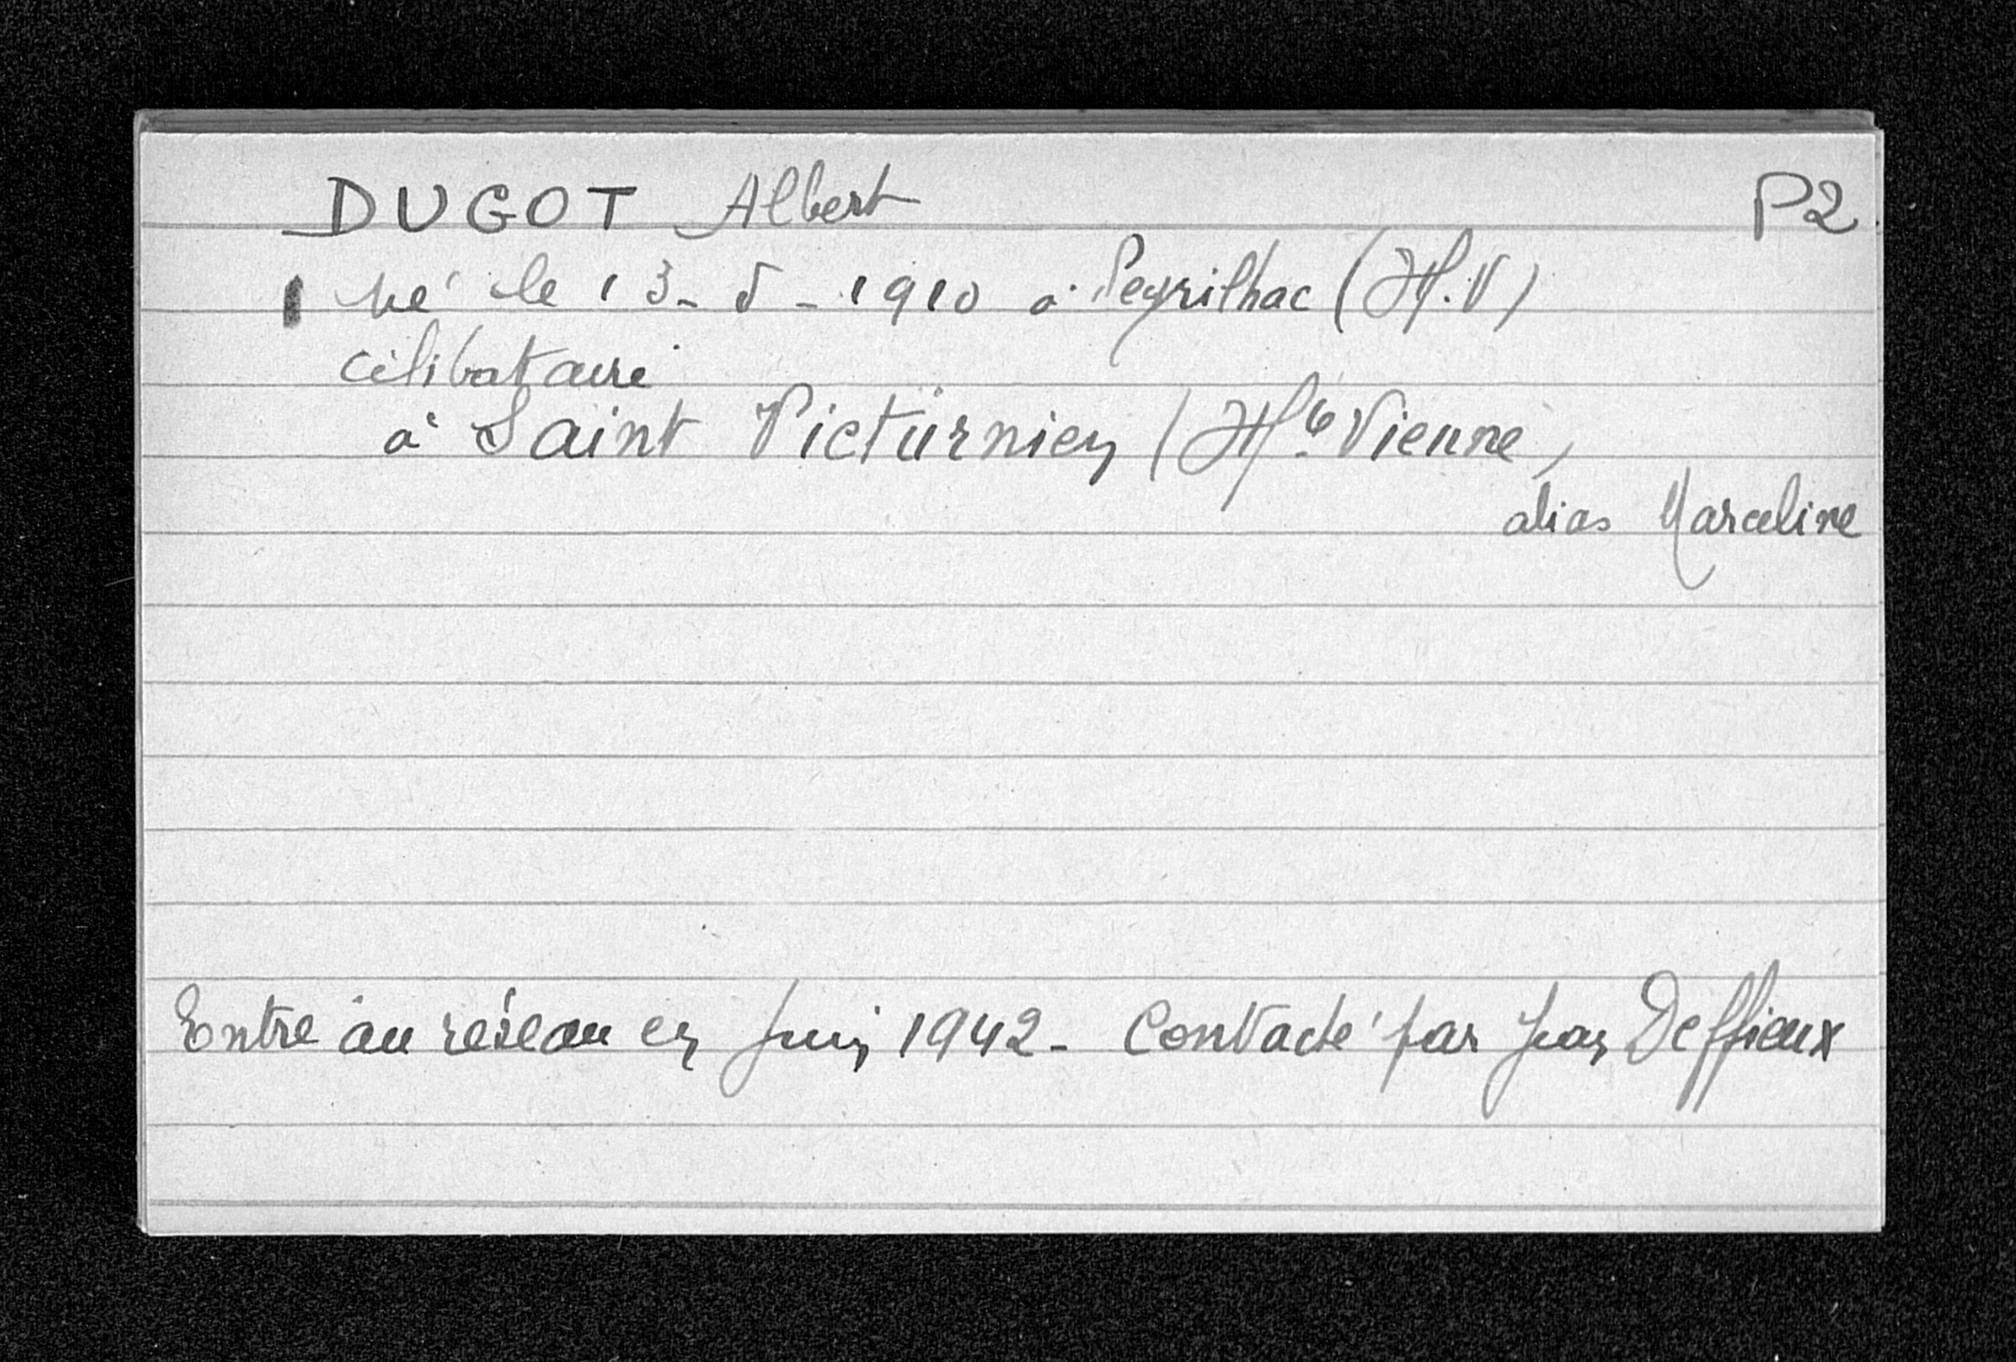 DUGOT Albert P2
né le 13-5-1910 à Peyrilhac (H.V)
célibataire
à Saint Victurnien (Hte Vienne)
alias Marceline
Entre au réseau en Juin 1942 - Contacté par Jean Deffieux